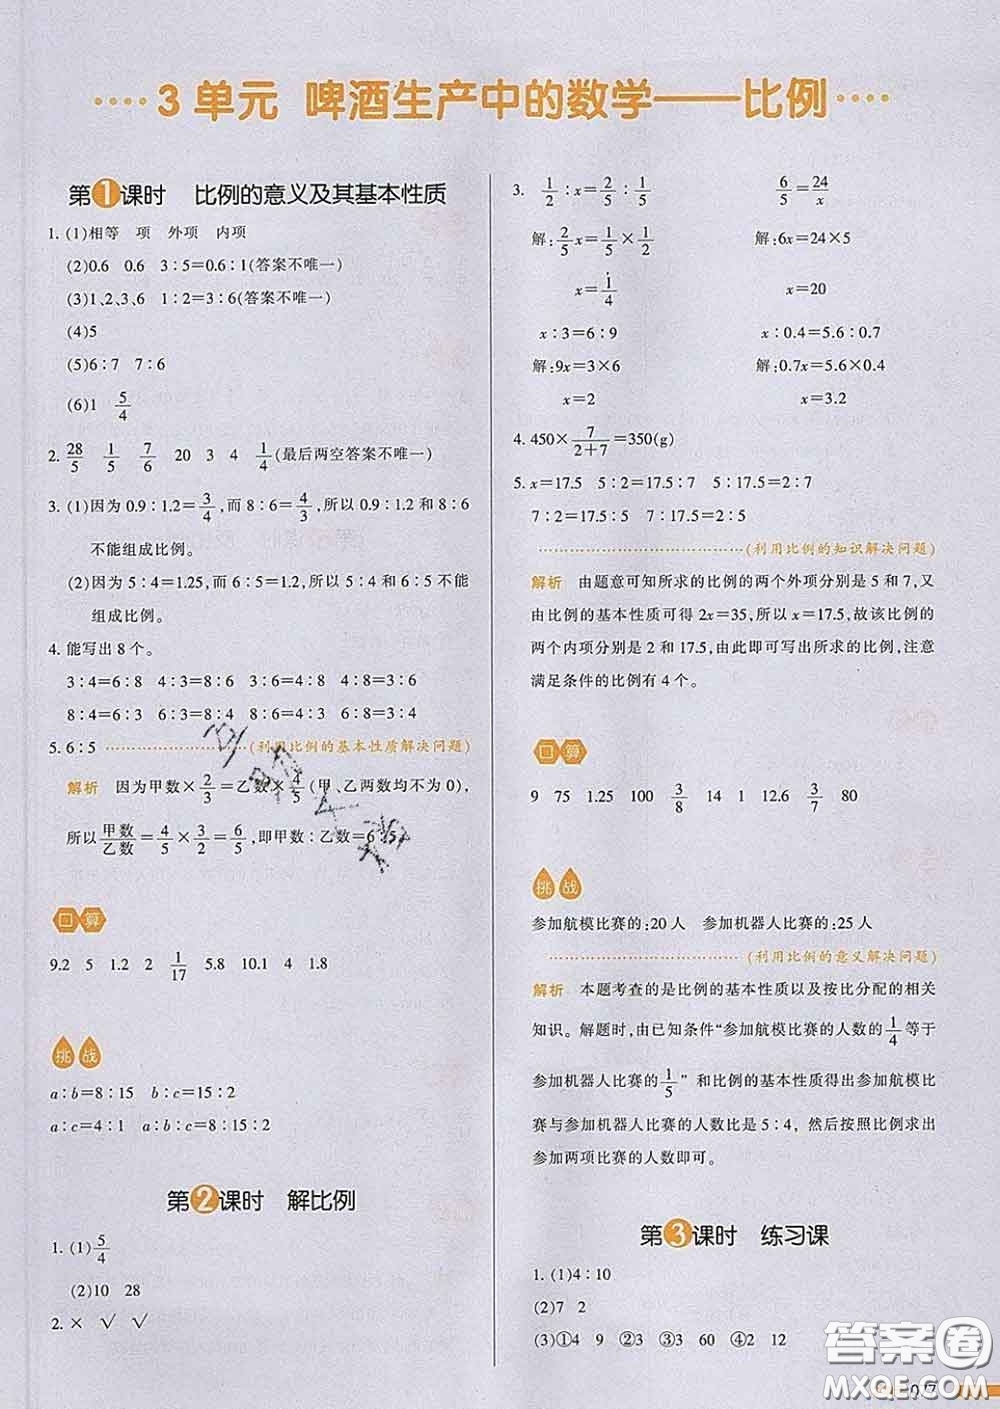 3 单元 啤酒生产中的数学——比例
第1课时 比例的意义及其基本性质
1. (1)相等 项 外项 内项
(2)0.6 0.6 3∶5=0.6∶1(答案不唯一)
(3)1、2、3、6 1∶2=3∶6(答案不唯一)
(4)5
(5)6∶7 7∶6
(6)1 5/4
2. 28/5 1/5 7/6 20 3 4 1/4(最后两空答案不唯一)
3. (1)因为 0.9∶1.2=3/4,而 8∶6=4/3,所以 0.9∶1.2 和 8∶6
不能组成比例。
(2)因为 5∶4=1.25,而 6∶5=1.2,所以 5∶4 和 6∶5 不能
组成比例。
4. 能写出 8 个。
3∶4=6∶8 4∶3=8∶6 3∶6=4∶8 6∶3=8∶4
8∶4=6∶3 6∶8=3∶4 4∶8=3∶6 8∶6=4∶3
5. 6∶5 (利用比例的基本性质解决问题)
解析 因为甲数×2/3=乙数×4/5(甲、乙两数均不为 0),
所以甲数/乙数=4/5×3/2=6/5,即甲数∶乙数=6∶5。
口算
9.2 5 1.2 2 1/17 5.8 10.1 4 1.8
挑战
a∶b=8∶15 b∶c=15∶2
a∶c=4∶1 a∶b∶c=8∶15∶2
第2课时 解比例
1. (1)5/4
(2)10 28
2. × √ √
3. 1/2∶x=2/5∶1/5 6/5=24/x
解:2/5x=1/5×1/2 解:6x=24×5
x=1/4 x=20
x∶3=6∶9 x∶0.4=5.6∶0.7
解:9x=3×6 解:0.7x=5.6×0.4
x=2 x=3.2
4. 450×7/(2+7)=350(g)
5. x=17.5 5∶2=17.5∶7 5∶17.5=2∶7
7∶2=17.5∶5 7∶17.5=2∶5
(利用比例的知识解决问题)
解析 由题意可知所求的比例的两个外项分别是 5 和 7,又
由比例的基本性质可得 2x=35,所以 x=17.5,故该比例的
两个内项分别是 2 和 17.5,由此即可写出所求的比例,注意
满足条件的比例有 4 个。
口算
9 75 1.25 100 3/8 14 1 12.6 3/7 80
挑战
参加航模比赛的:20 人 参加机器人比赛的:25 人
(利用比例的意义解决问题)
解析 本题考查的是比例的基本性质以及按比分配的相关
知识。解题时,由已知条件“参加航模比赛的人数的1/4等于
参加机器人比赛的1/5”和比例的基本性质得出参加航模比
赛与参加机器人比赛的人数比是 5∶4,然后按照比例求出
参加两项比赛的人数即可。
第3课时 练习课
1. (1)4∶10
(2)7 2
(3)①4 9 ②3 ③3 60 ④2 12
答案圈
MXQE.COM